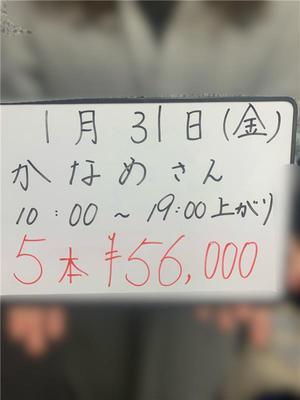 1月31日(金)
かなめさん
10:00～19:00上がり
5本 ¥56,000